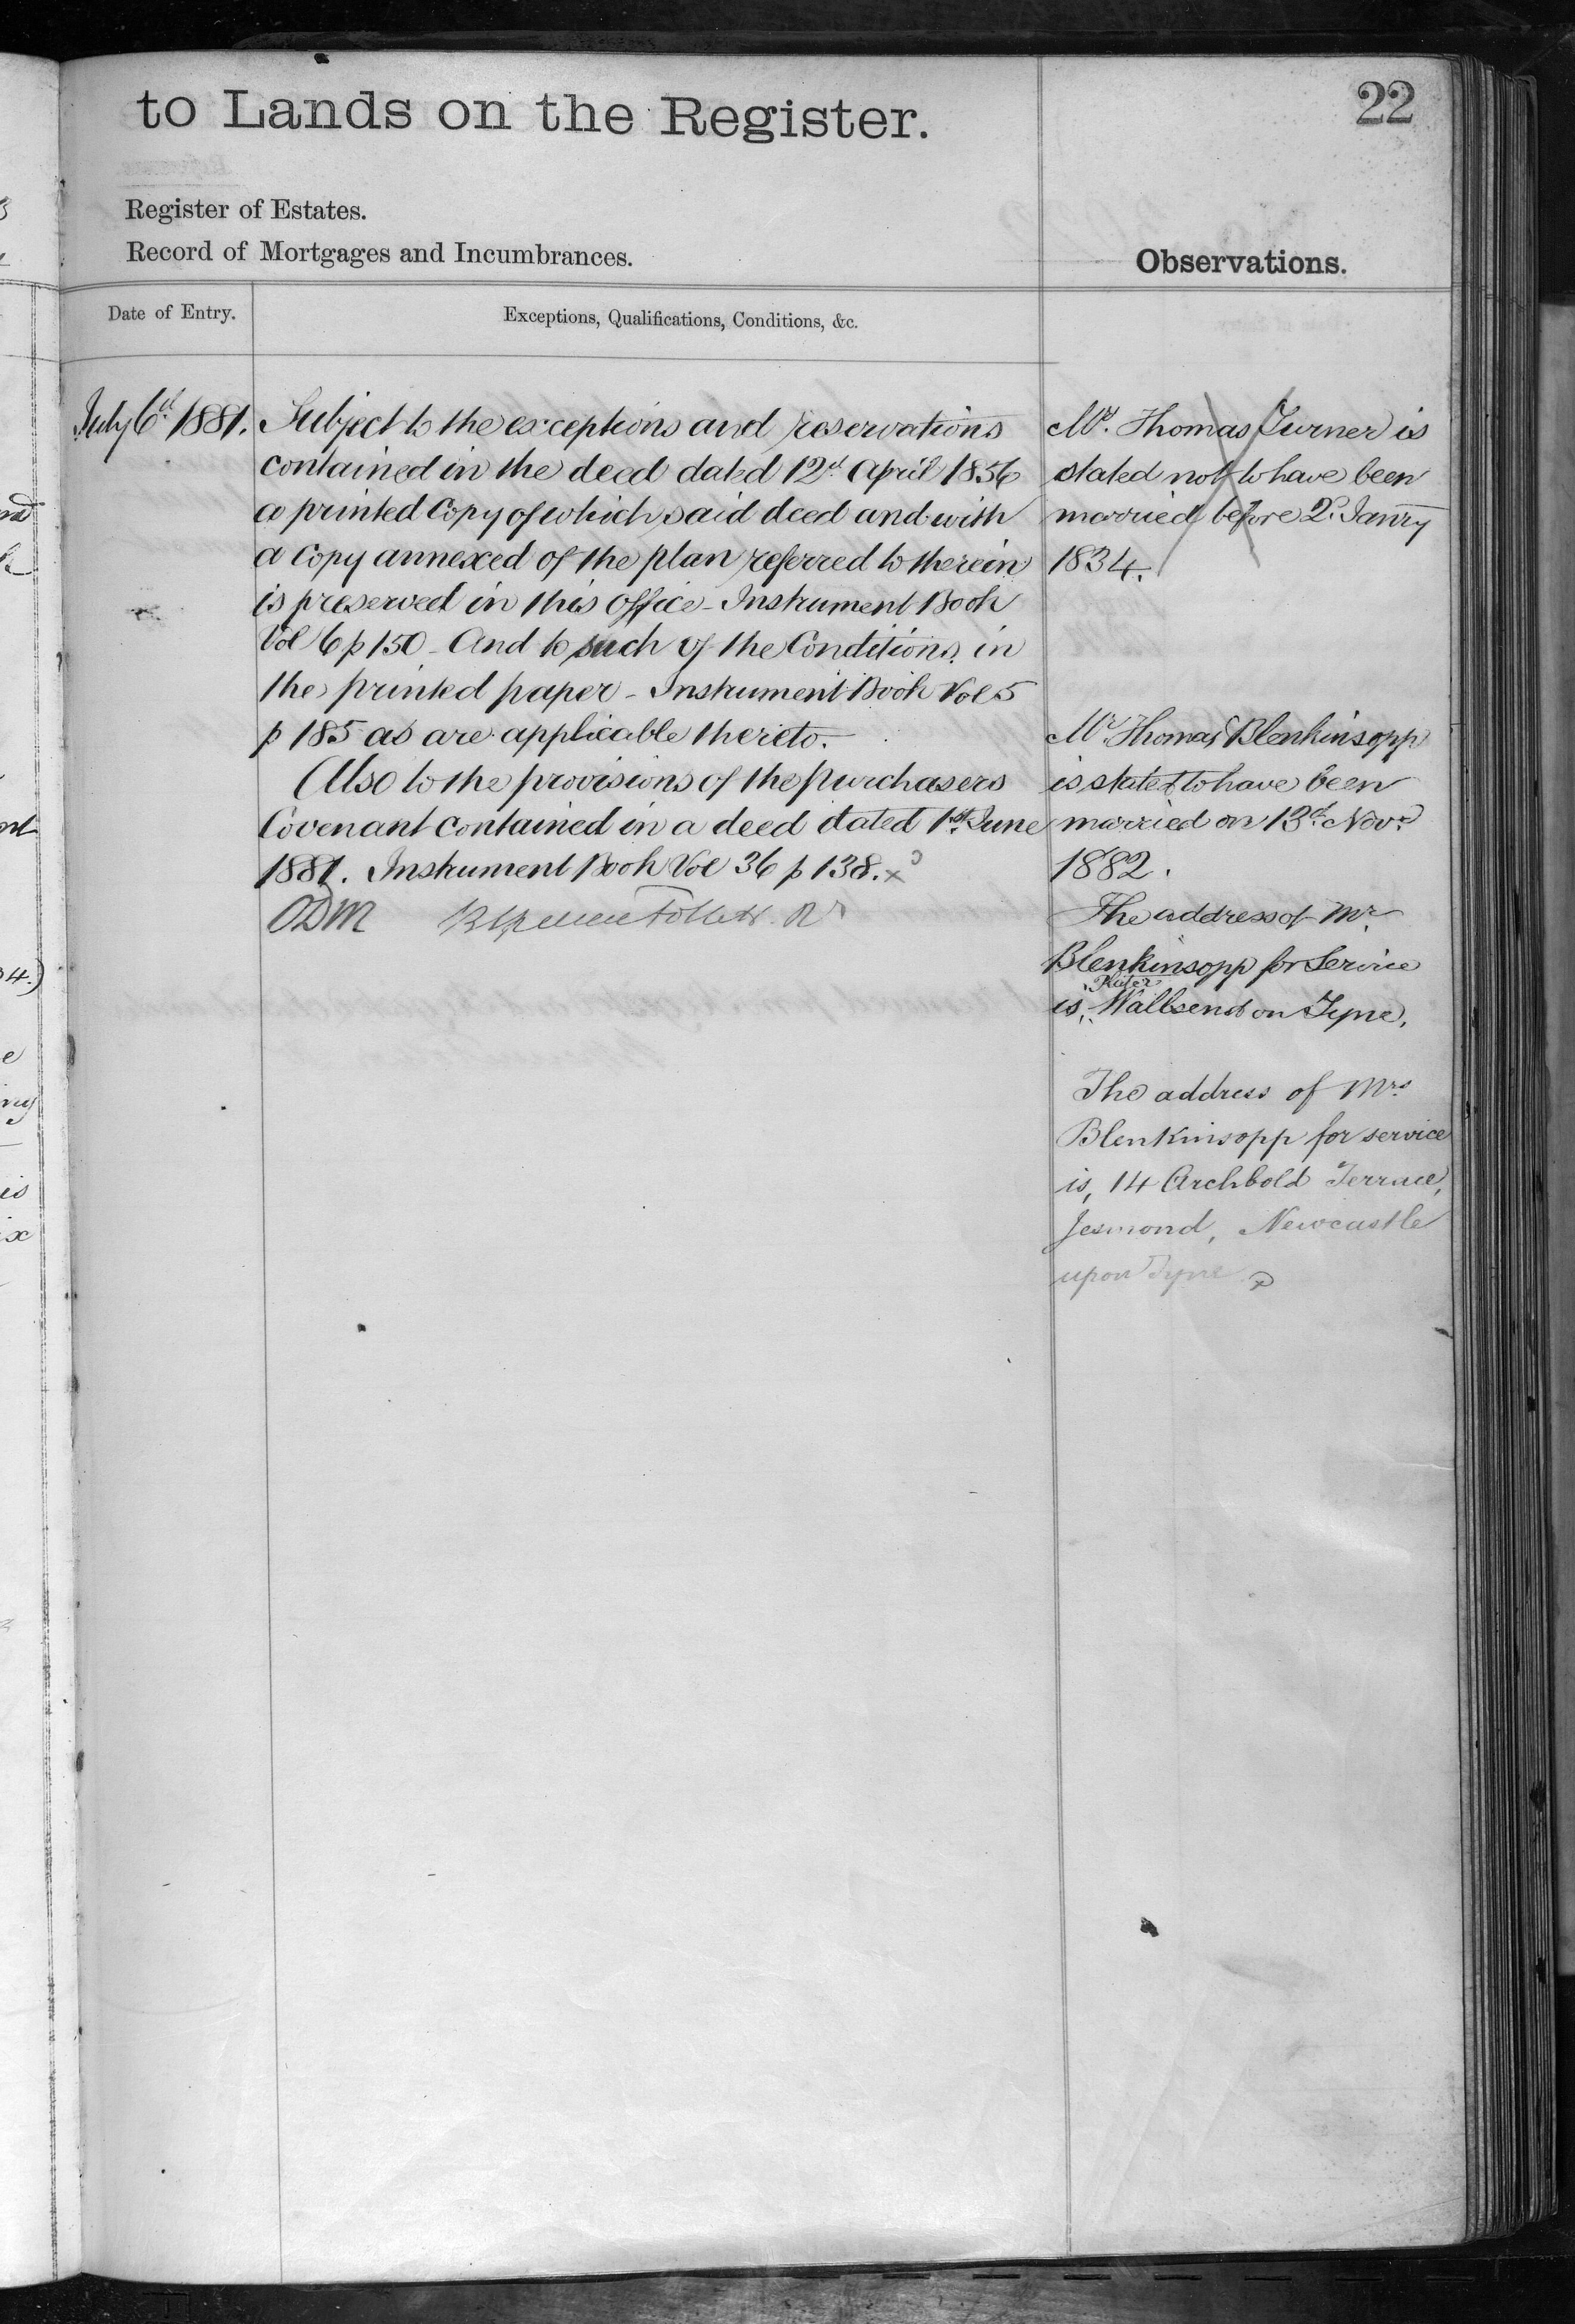 to Lands on the Register.
22
Register of Estates.
Record of Mortgages and Incumbrances.
Observations.
Date of Entry.
Exceptions, Qualifications, Conditions, &c.
July 6th 1881.
Subject to the exceptions and reservations
contained in the deed dated 12th April 1856
a printed Copy of which said deed and with
a Copy annexed of the plan referred to therein
is preserved in this Office - Instrument Book
Vol 6 p 150 - And to such of the Conditions in
the printed paper - Instrument Book Vol 5
p 185 as are applicable thereto.
Also to the provisions of the purchasers
Covenant contained in a deed dated 1st June
1881. Instrument Book Vol 36 p 138. x
ODM
Mr. Thomas Turner is
stated not to have been
married before 2d. Janry
1834.
Mr Thomas Blenkinsopp
is stated to have been
married on 13th Novr
1882.
The address of Mr.
Blenkinsopp for Service
Plater
is, Wallsend on Tyne.
The address of Mrs
Blenkinsopp for service
is, 14 Archbold Terrace,
Jesmond, Newcastle
upon Tyne